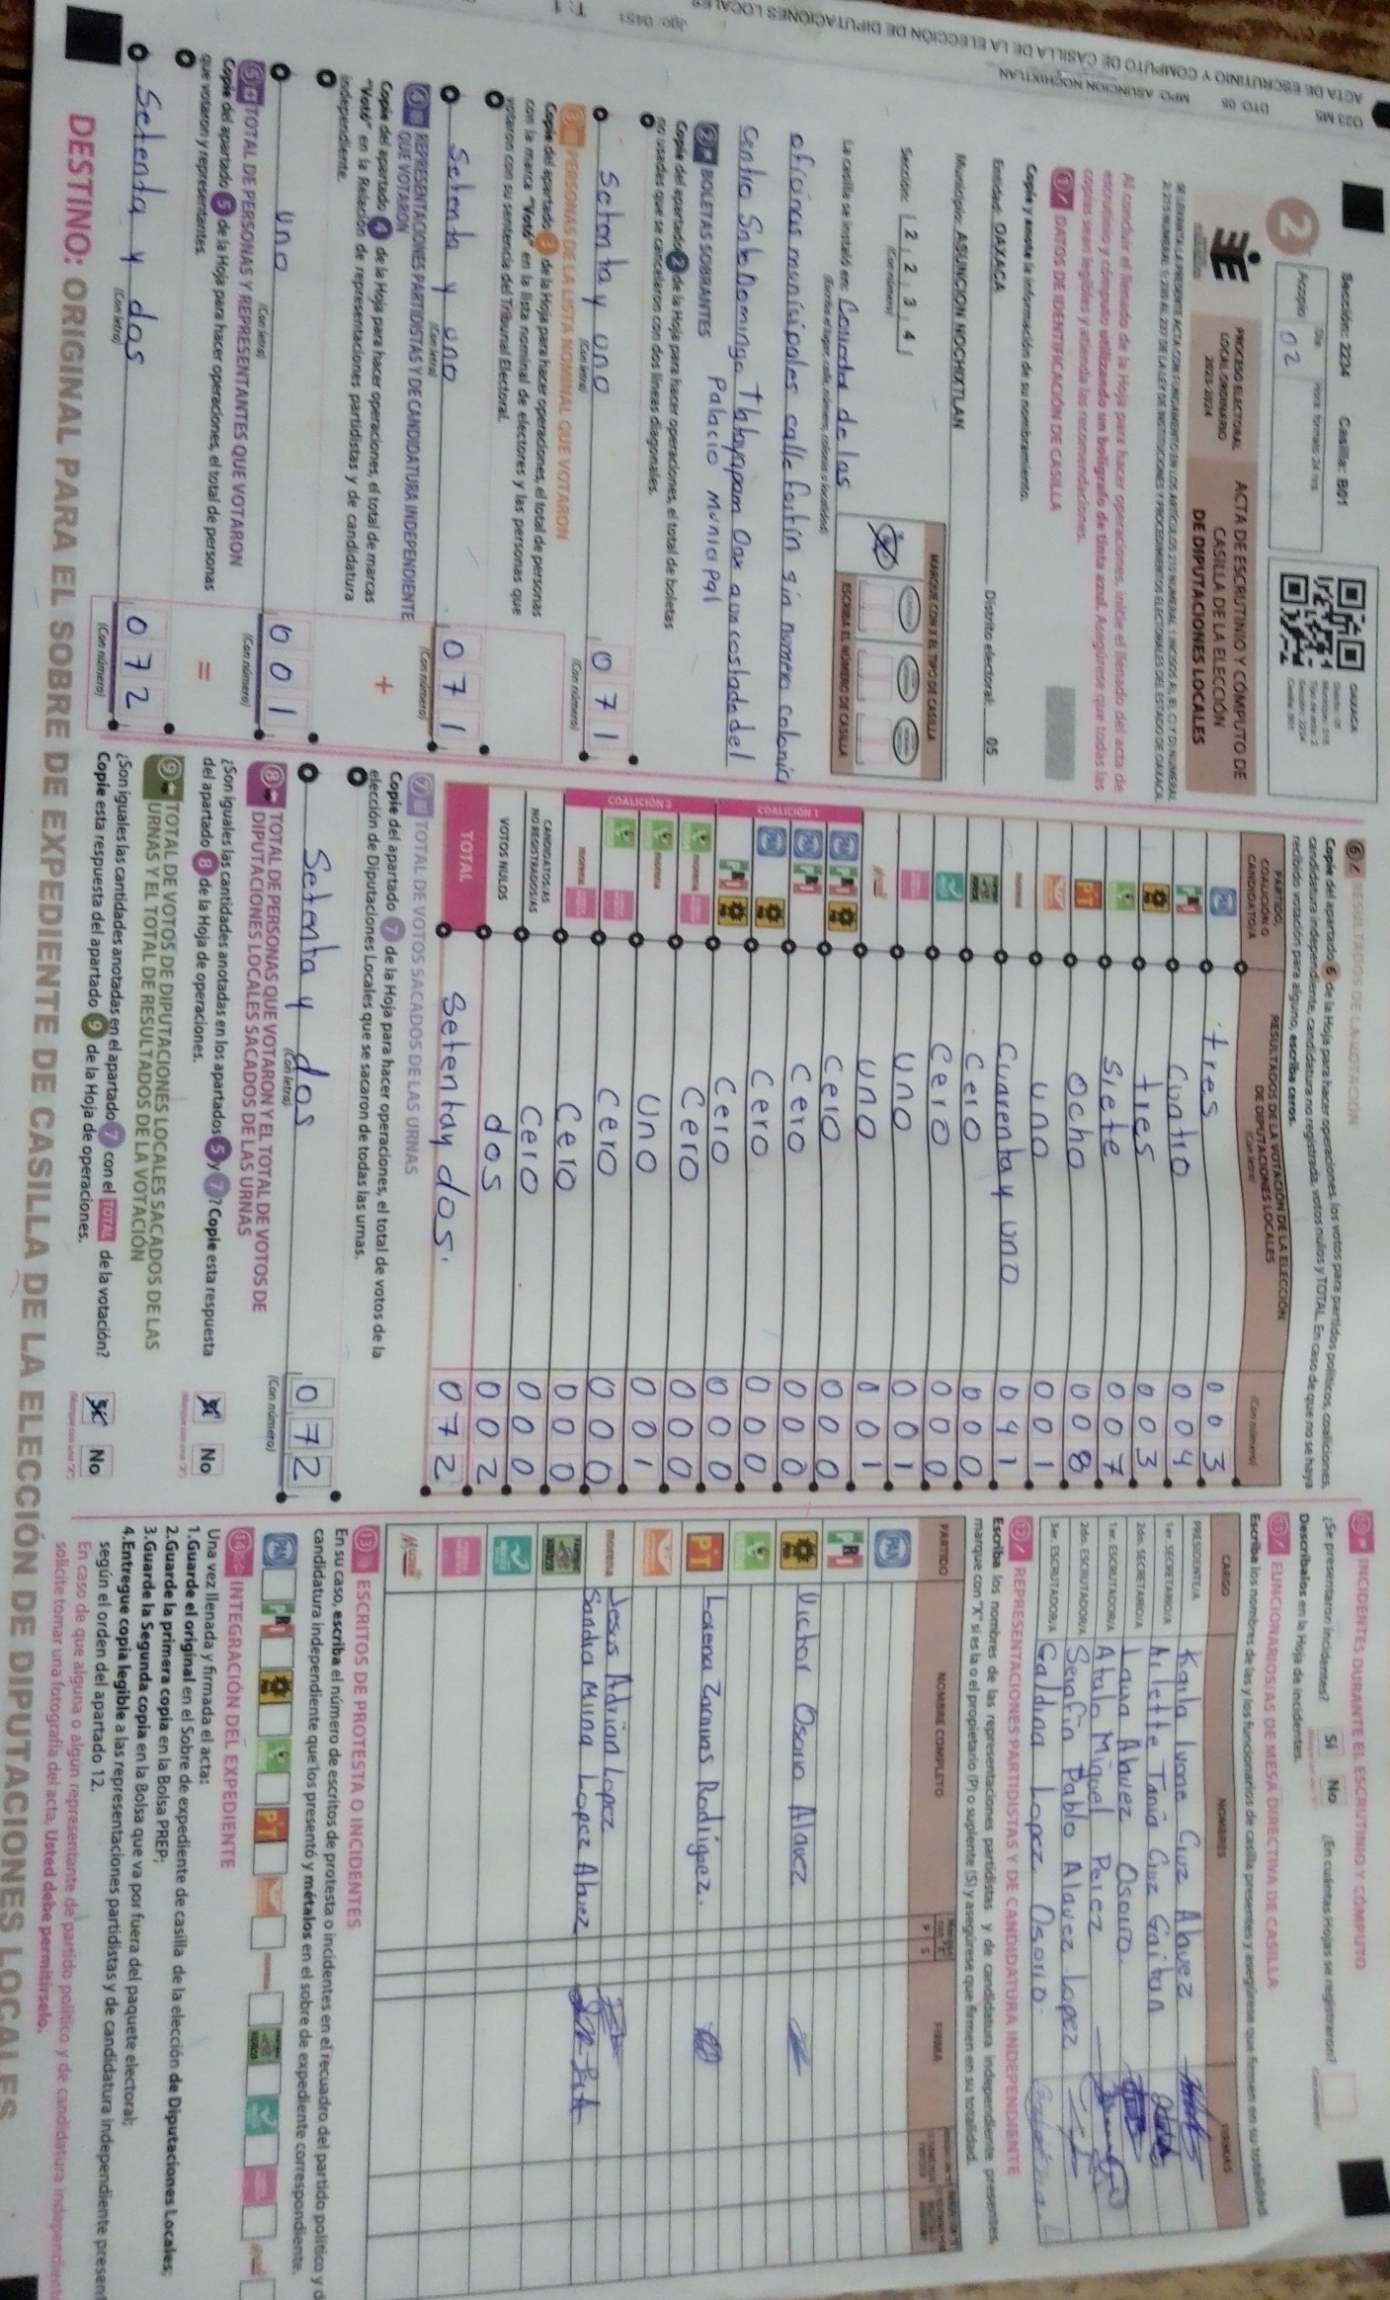 023 M5 DTO: 05 MPO: ASUNCION NOCHIXTLAN
ACTA DE ESCRUTINIO Y COMPUTO DE CASILLA DE LA ELECCIÓN DE DIPUTACIONES LOCALES
Sección: 2234 Casilla: B01
OAXACA
2
Día Hora: formato 24 hrs
Acopio 02
PROCESO ELECTORAL
LOCAL ORDINARIO
2023-2024
ACTA DE ESCRUTINIO Y CÓMPUTO DE
CASILLA DE LA ELECCIÓN
DE DIPUTACIONES LOCALES
Al concluir el llenado de la Hoja para hacer operaciones, inicie el llenado del acta de
escrutinio y cómputo utilizando un bolígrafo de tinta azul. Asegúrese que todas las
copias sean legibles y atienda las recomendaciones.
1 DATOS DE IDENTIFICACIÓN DE CASILLA
Copie y anote la información de su nombramiento.
Entidad: OAXACA Distrito electoral: 05
Municipio: ASUNCION NOCHIXTLAN
Sección: 2 2 3 4
(Con número)
MARQUE CON X EL TIPO DE CASILLA
ESCRIBA EL NÚMERO DE CASILLA
La casilla se instaló en: de las
(Escriba el lugar, calle, número, colonia o localidad)
oficinas municipales calle fortin sin numero colonia
centro Snto Domingo Oax a un costado del
Palacio Municipal
2 BOLETAS SOBRANTES
Copie del apartado 2 de la Hoja para hacer operaciones, el total de boletas
no usadas que se cancelaron con dos líneas diagonales.
Setenta y uno 0 7 1
(Con letra) (Con número)
3 PERSONAS DE LA LISTA NOMINAL QUE VOTARON
Copie del apartado 3 de la Hoja para hacer operaciones, el total de personas
con la marca "Votó" en la lista nominal de electores y las personas que
votaron con su sentencia del Tribunal Electoral.
Setenta y uno 0 7 1
(Con letra) (Con número)
4 REPRESENTACIONES PARTIDISTAS Y DE CANDIDATURA INDEPENDIENTE
QUE VOTARON
Copie del apartado 4 de la Hoja para hacer operaciones, el total de marcas
"Votó" en la Relación de representaciones partidistas y de candidatura
independiente.
+
uno 0 0 1
(Con letra) (Con número)
5 TOTAL DE PERSONAS Y REPRESENTANTES QUE VOTARON
Copie del apartado 5 de la Hoja para hacer operaciones, el total de personas
que votaron y representantes.
=
Setenta y dos 0 7 2
(Con letra) (Con número)
6 RESULTADOS DE LA VOTACIÓN
Copie del apartado 6 de la Hoja para hacer operaciones, los votos para partidos políticos, coaliciones,
candidatura independiente, candidatura no registrada, votos nulos y TOTAL. En caso de que no se haya
recibido votación para alguno, escriba ceros.
PARTIDO, COALICIÓN O CANDIDATO/A
RESULTADOS DE LA VOTACIÓN DE LA ELECCIÓN
DE DIPUTACIONES LOCALES
(Con letra) (Con número)
PAN tres 0 0 3
PRI Cuatro 0 0 4
tres 0 0 3
Siete 0 0 7
PT Ocho 0 0 8
uno 0 0 1
morena Cuarenta y uno 0 4 1
Cero 0 0 0
Cero 0 0 0
uno 0 0 1
uno 0 0 1
COALICIÓN 1
PAN PRI Cero 0 0 0
PAN PRI Cero 0 0 0
PAN Cero 0 0 0
PRI Cero 0 0 0
COALICIÓN 2
morena Cero 0 0 0
morena Uno 0 0 1
Cero 0 0 0
morena Cero 0 0 0
CANDIDATOS/AS
NO REGISTRADOS/AS Cero 0 0 0
VOTOS NULOS dos 0 0 2
TOTAL Setenta y dos. 0 7 2
7 TOTAL DE VOTOS SACADOS DE LAS URNAS
Copie del apartado 7 de la Hoja para hacer operaciones, el total de votos de la
elección de Diputaciones Locales que se sacaron de todas las urnas.
Setenta y dos 0 7 2
(Con letra) (Con número)
8 TOTAL DE PERSONAS QUE VOTARON Y EL TOTAL DE VOTOS DE
DIPUTACIONES LOCALES SACADOS DE LAS URNAS
¿Son iguales las cantidades anotadas en los apartados 5 y 7? Copie esta respuesta
del apartado 8 de la Hoja de operaciones.
No
9 TOTAL DE VOTOS DE DIPUTACIONES LOCALES SACADOS DE LAS
URNAS Y EL TOTAL DE RESULTADOS DE LA VOTACIÓN
¿Son iguales las cantidades anotadas en el apartado 7 con el TOTAL de la votación?
Copie esta respuesta del apartado 9 de la Hoja de operaciones.
No
10 INCIDENTES DURANTE EL ESCRUTINIO Y CÓMPUTO
¿Se presentaron incidentes? Sí No ¿En cuántas Hojas se registraron?
Descríbalos en la Hoja de incidentes.
11 FUNCIONARIOS/AS DE MESA DIRECTIVA DE CASILLA
Escriba los nombres de las y los funcionarios de casilla presentes y asegúrese que firmen en su totalidad.
CARGO NOMBRES FIRMAS
PRESIDENTE/A Karla Ivone Cruz Alavez
1er. SECRETARIO/A Arlette Tania Cruz Gaitan
2do. SECRETARIO/A Laura Alavez Osorio
1er. ESCRUTADOR/A Atalo Miguel Perez
2do. ESCRUTADOR/A Serafin Pablo Alavez Lopez
3er. ESCRUTADOR/A Galdina Lopez Osorio.
12 REPRESENTACIONES PARTIDISTAS Y DE CANDIDATURA INDEPENDIENTE
Escriba los nombres de las representaciones partidistas y de candidatura independiente presentes,
marque con "X" si es la o el propietario (P) o suplente (S) y asegúrese que firmen en su totalidad.
PARTIDO NOMBRE COMPLETO P S FIRMA
PAN
PRI
Victor Osorio Alavez
PT Lorena Zacarias Rodriguez.
morena Jesus Adrian Lopez
Sandra Lopez Alavez
13 ESCRITOS DE PROTESTA O INCIDENTES
En su caso, escriba el número de escritos de protesta o incidentes en el recuadro del partido político y d
candidatura independiente que los presentó y métalos en el sobre de expediente correspondiente.
PAN PRI PT morena
14 INTEGRACIÓN DEL EXPEDIENTE
Una vez llenada y firmada el acta:
1.Guarde el original en el Sobre de expediente de casilla de la elección de Diputaciones Locales;
2.Guarde la primera copia en la Bolsa PREP;
3.Guarde la Segunda copia en la Bolsa que va por fuera del paquete electoral;
4.Entregue copia legible a las representaciones partidistas y de candidatura independiente presen
según el orden del apartado 12.
En caso de que alguna o algún representante de partido político y de candidatura independient
solicite tomar una fotografía del acta, Usted debe permitírselo.
DESTINO: ORIGINAL PARA EL SOBRE DE EXPEDIENTE DE CASILLA DE LA ELECCIÓN DE DIPUTACIONES LOCALES